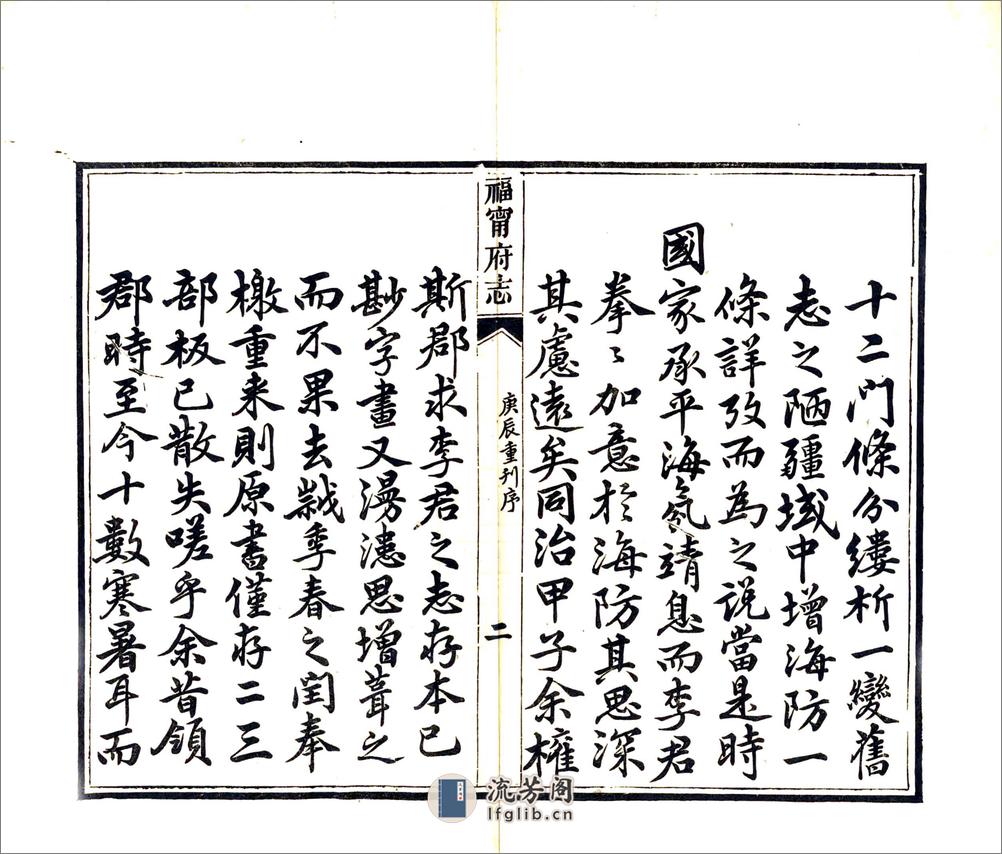 十二門條分縷析一變舊
志之陋疆域中增海防一
條詳攷而為之說當是時
國家承平海氛靖息而李君
拳〻加意於海防其思深
其慮遠矣同治甲子余權
福甯府志
庚辰重刊序
二
斯郡求李君之志存本已
尠字畫又漫漶思增葺之
而不果去歲季春之閏奉
檄重来則原書僅存二三
部板已散失嗟乎余昔領
郡時至今十數寒暑耳而
流芳阁
lfglib.cn